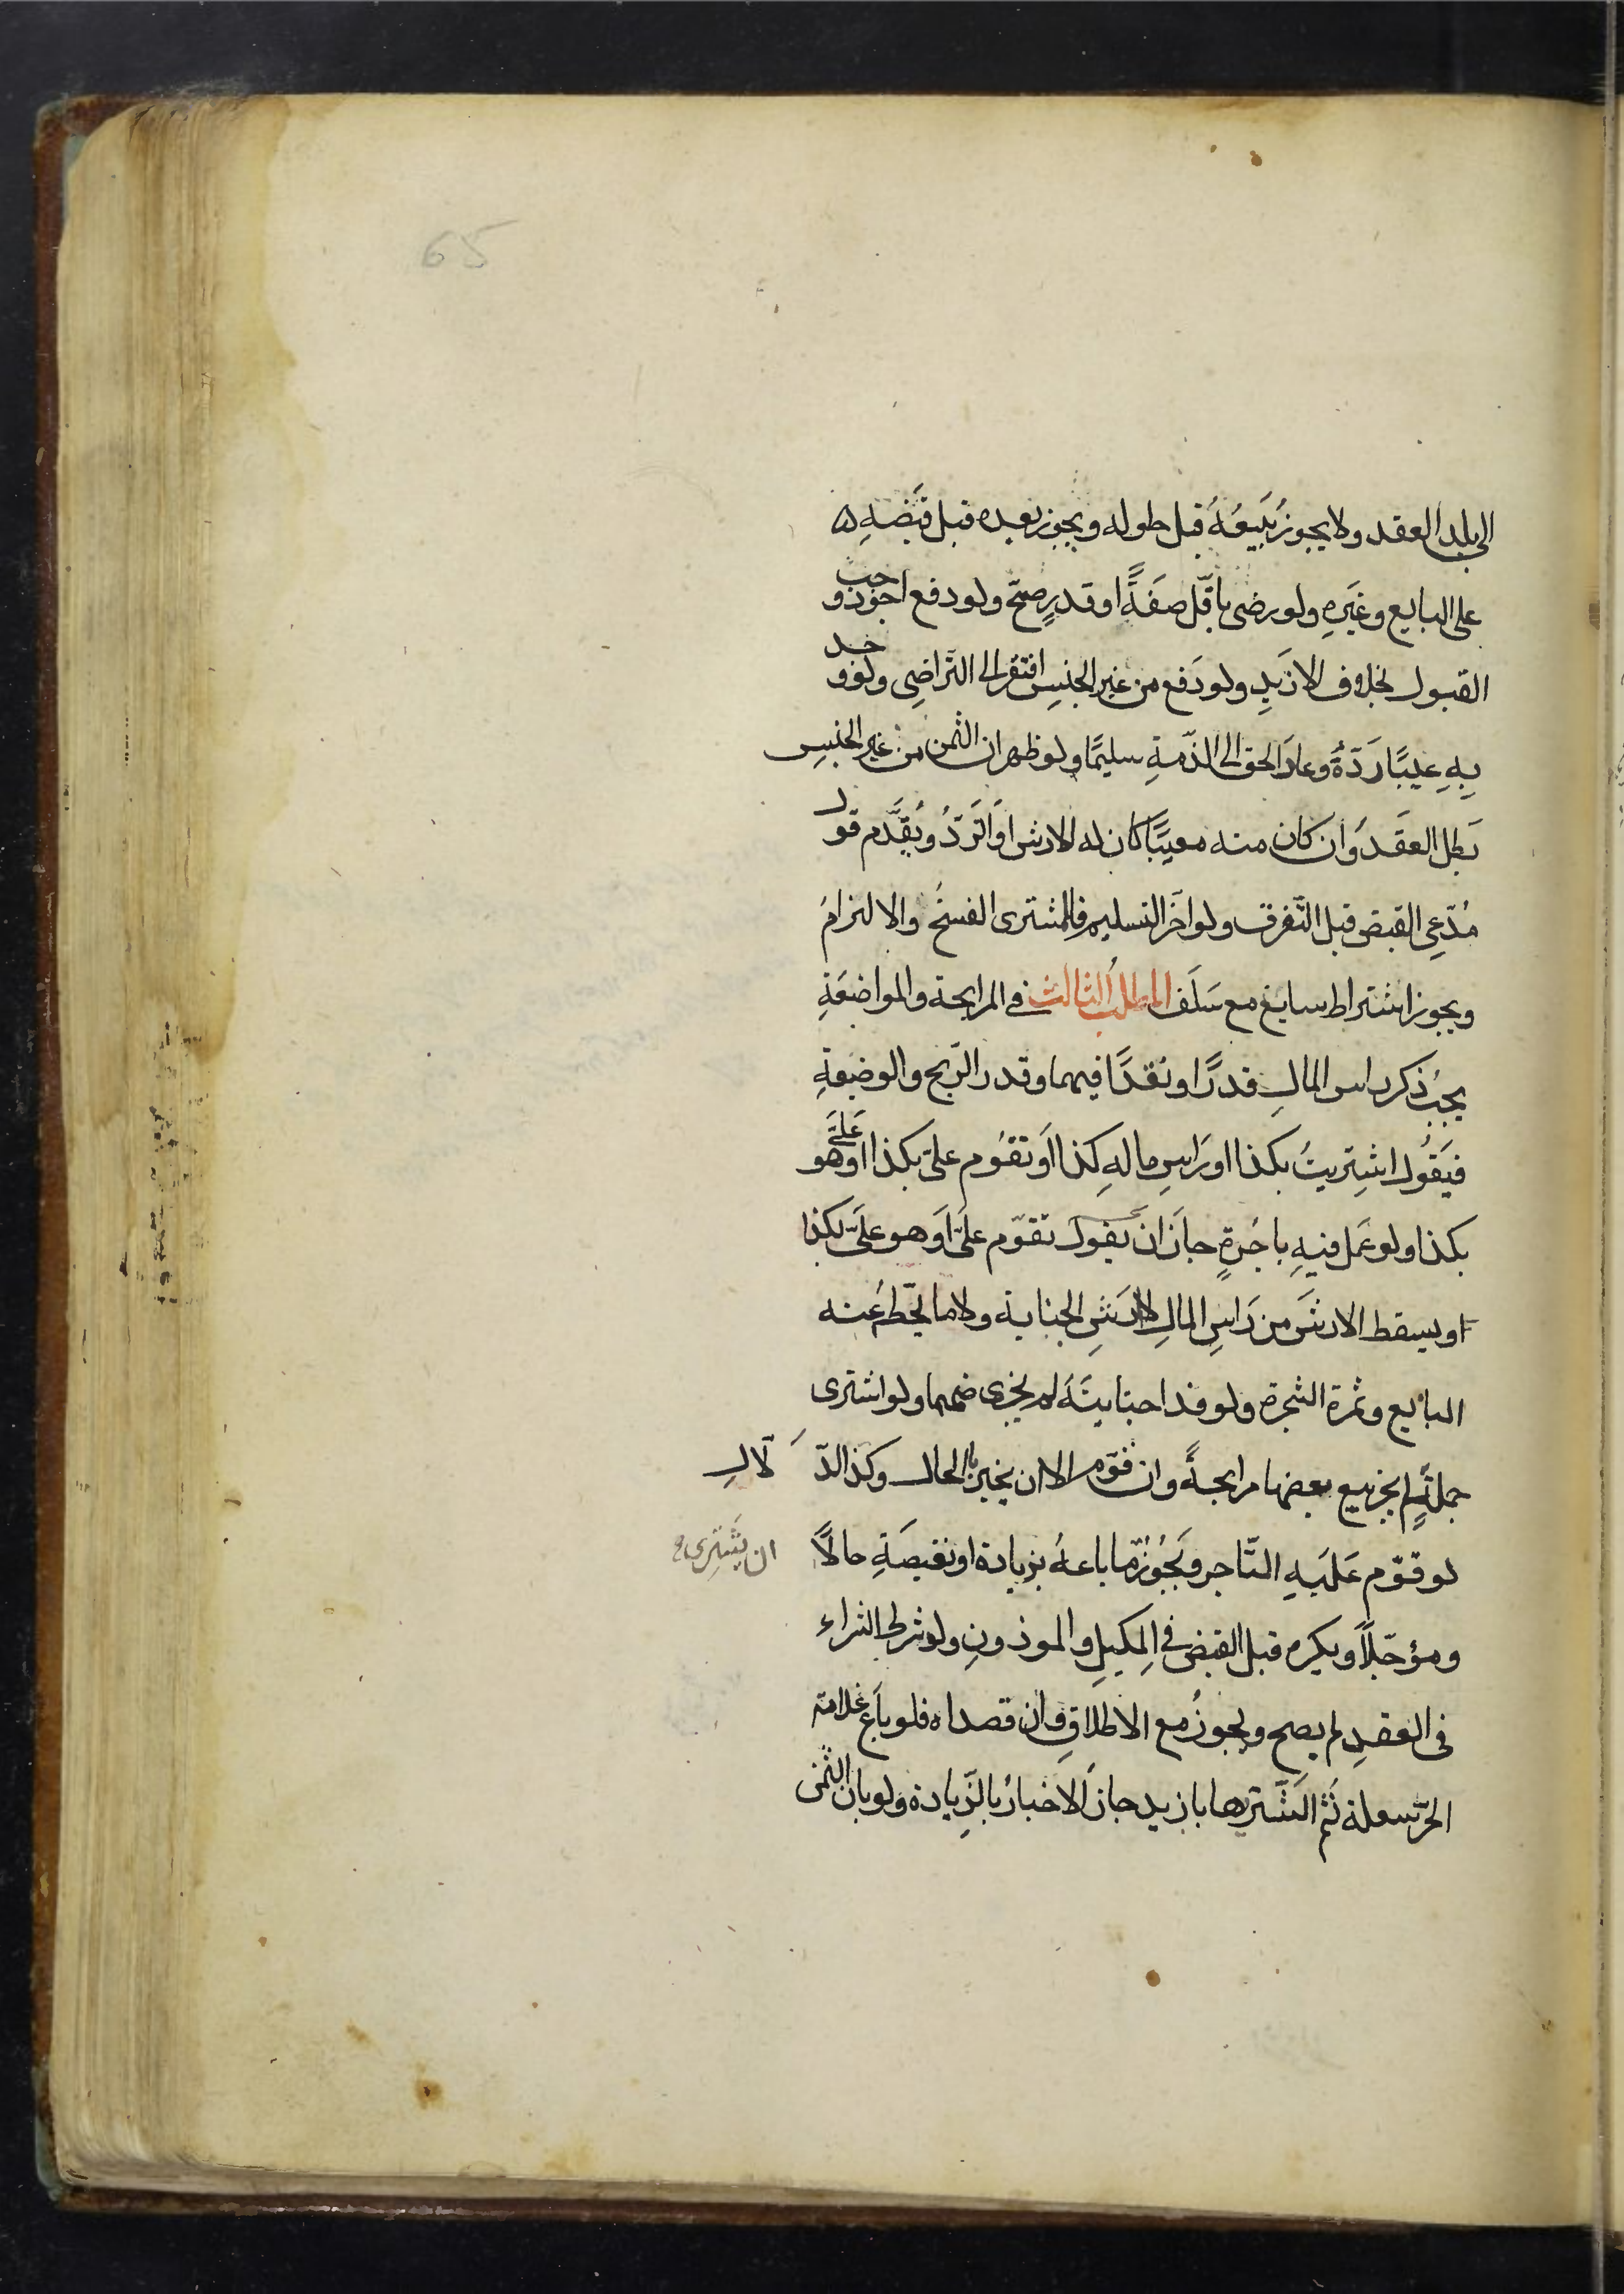 65
الى بلد العقد ولا يجوز بَيعُهُ قبل حلوله ويجوز بعده قبل قبَضهِ ۵
على البايع وغَيرهِ ولو رضى باقّل صفَةً او قدرٍ صحّ ولو دفع اجود وجب
القبول بخلاف الازيَدِ ولو دَفع من غير الجنسِ افتقر الى التراضِى ولو وجد
بِهِ عيبًا رَدّهُ وعادَ الحق الى الذّمةِ سليمًا ولو ظهر ان الثمن من غير الجنسِ
بَطل العقَد وَان كان منه معيبًا كان له الارش او الرَدُّ ويُقدَّم قول
مُدّعِى القبض قبل التَّفرق ولو اخّر التسليم فللمشترى الفسخُ والالزامُ
ويجوز اشتراط سايغ مع سَلَف المطلبُ الثالث فى المرابحة والمواضعَةِ
يجبُ ذكر راس المالِ قدرًا ونقدًا فيهما وقدر الرّبح والوضيعةِ
فيَقُول اشتِريتُ بكذا او رَاسِ مالهِ كذا او تقوُم علىّ بكذا او هو عَلَىّ
بكذا ولو عَمل فيهِ باجُرةٍ جاَز ان يقول تقوّم علَىّ اَو هو علَىّ بكذا
او يسقط الارشَ من رَاسِ المالِ لا ارشِ الجناية ولا ما يحّطُ عنه
البايع وثمرة الشجرة ولو فدا جنايتَهَ لم يجز ضمها ولو اشترى
جملةً لم يجز بيع بعضها مرابحةً وان قوّم الا ان يخبر بالحال وكذا الدّ لّالِ
لو قوّم عَليَهِ التّاجر ويَجُوُز ما باعهُ بزيادة او نقيصَةِ حالًا
ان يشَترِى
ومؤجّلًا ويكره قبل القبض فى المكيلِ والموزونِ ولو شرط الشراء
فى العقدِ لم يصح ويجوزُ مع الاطلاقِ وان قصداه فلو باَع غلامَه
الحرّ سعلة ثم اشتريها بازيد جازَ الاخبارُ بالزِّيادة ولو بان الثمن